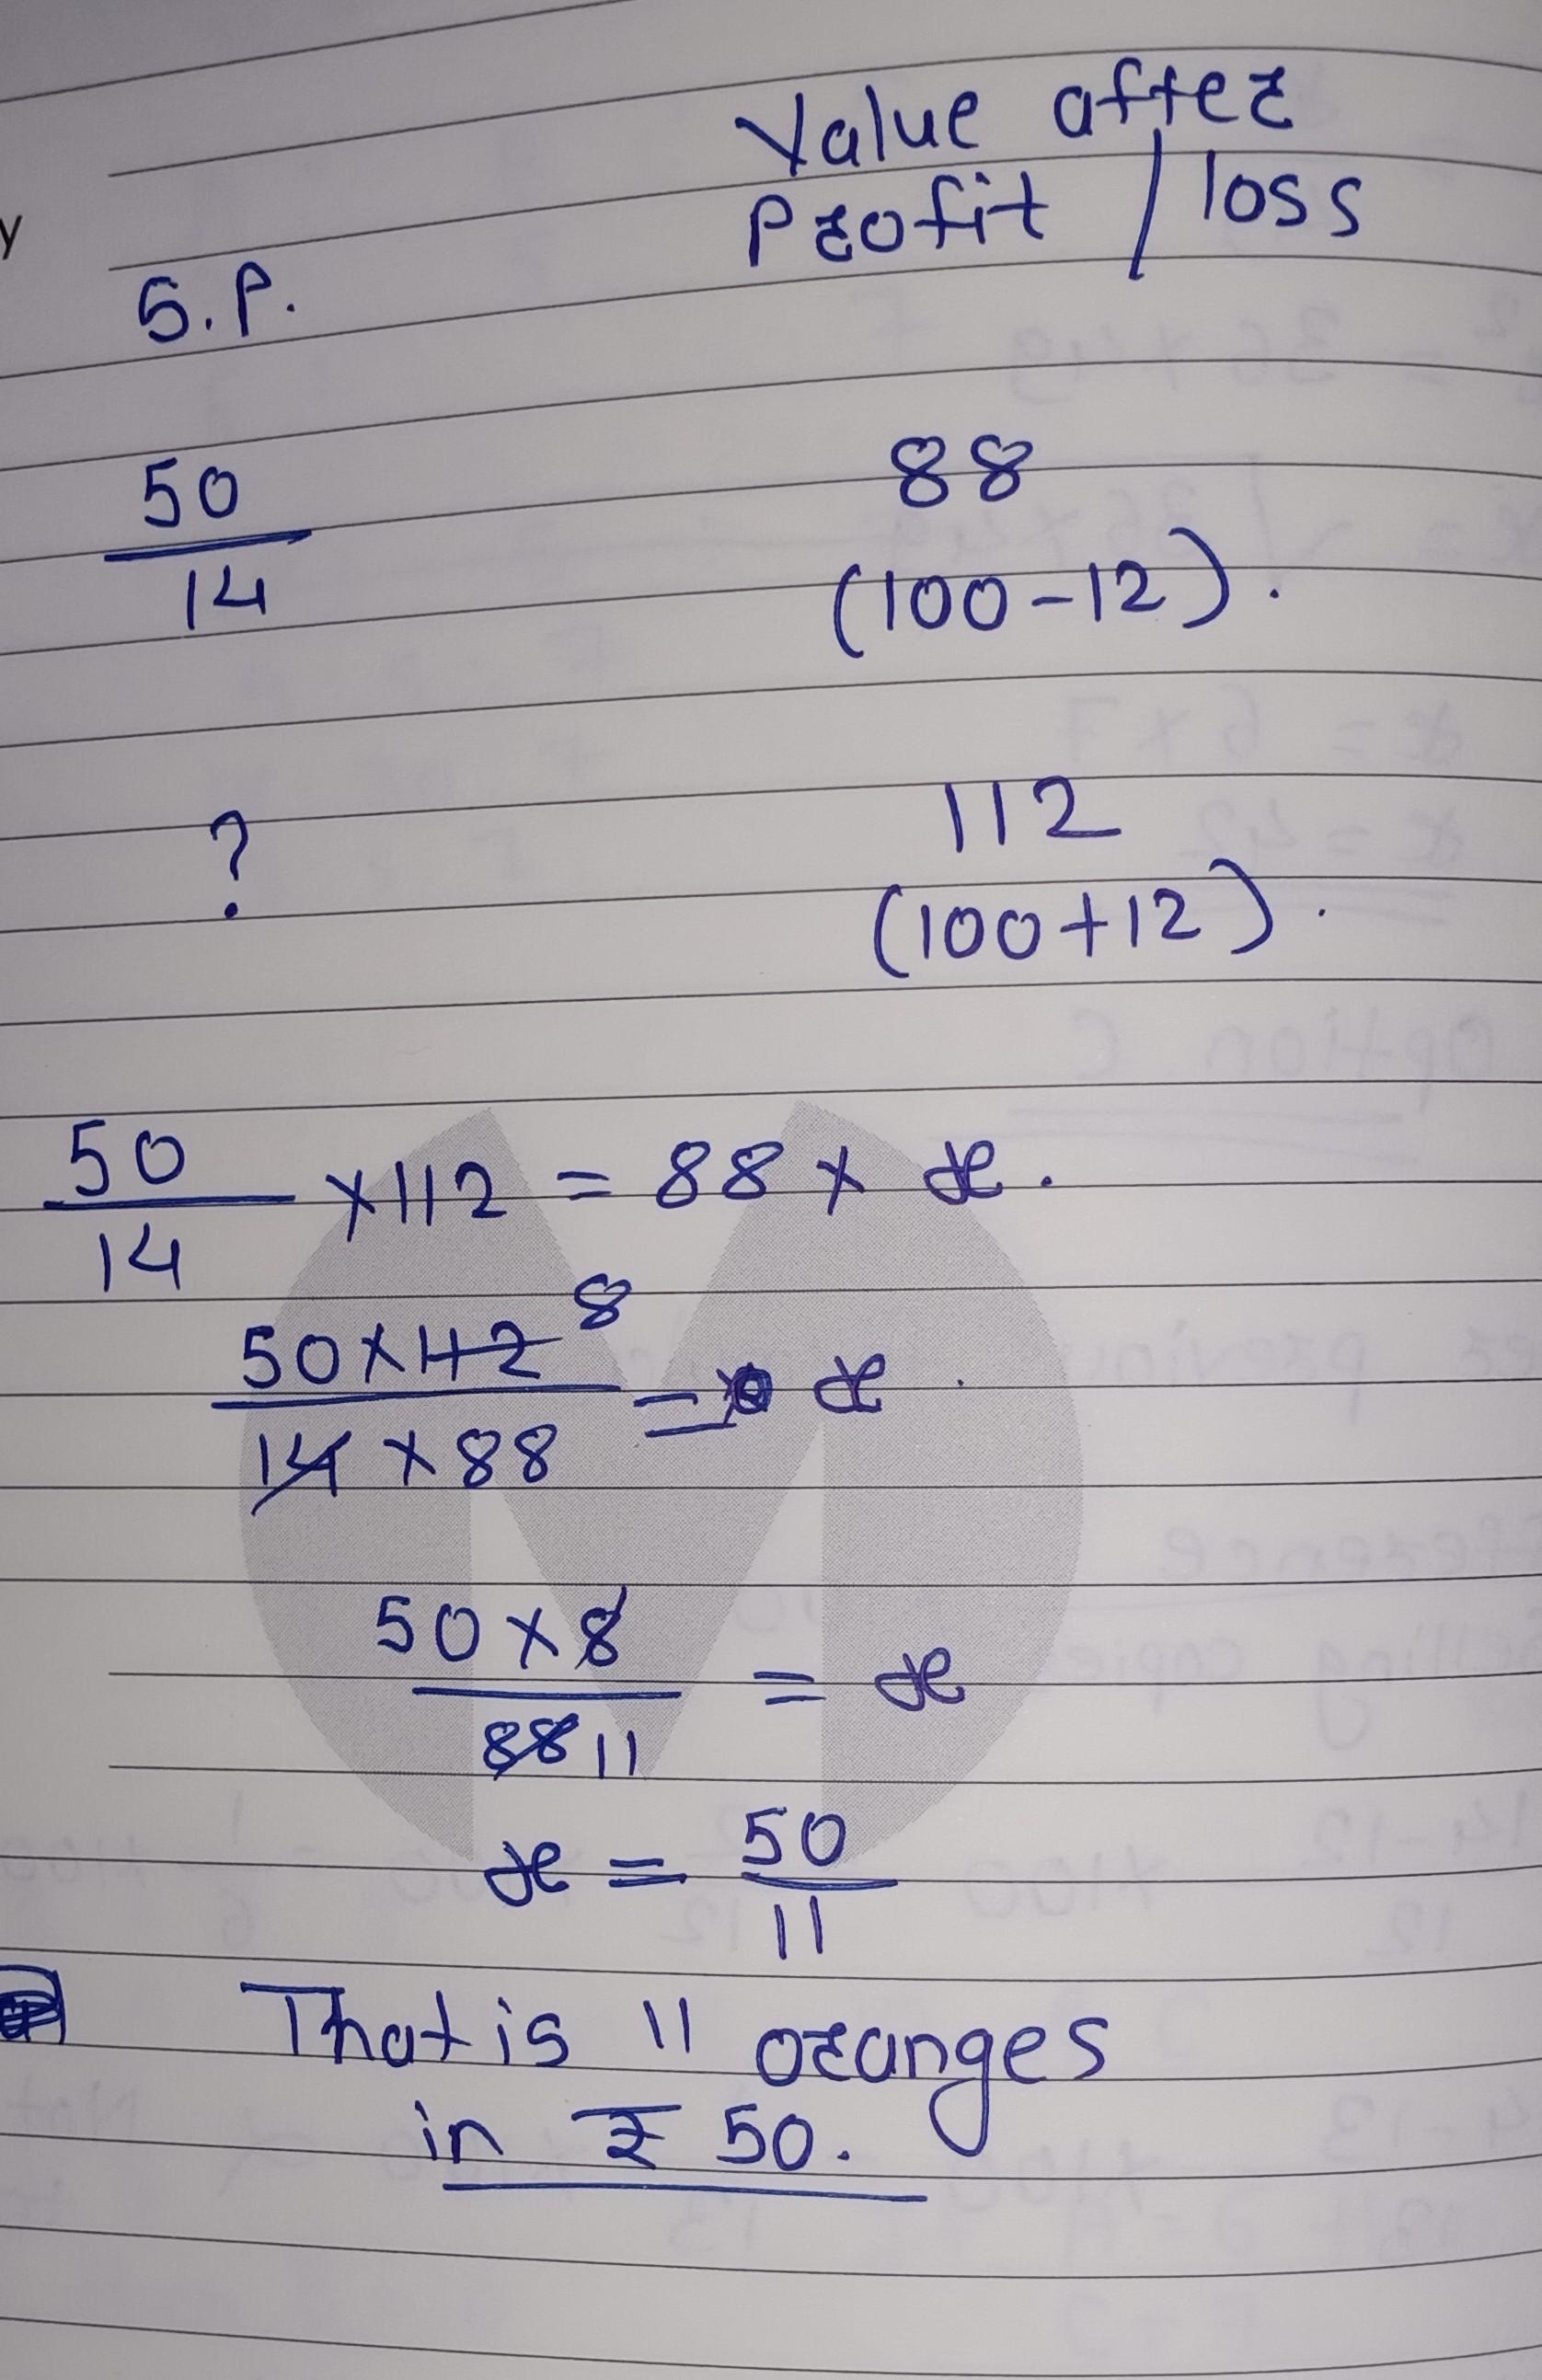 Value after
Profit / loss
y
S.P.
50
14
88
(100-12).
?
112
(100+12).
50
14
×112 = 88 × x.
50×112 8
14 × 88
= x
50 × 8
88 11
= x
x = 50
11
That is 11 oranges
in ₹ 50.